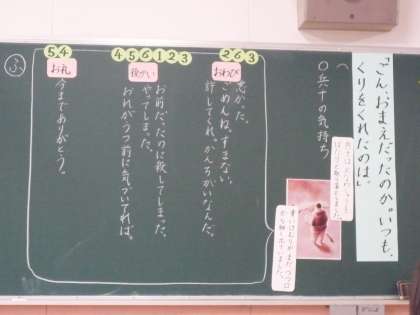 「ごん、おまえだったのか。いつも、
くりをくれたのは」
○兵十の気持ち
263
おわび
悪かった。
ごめんね。すまない。
許してくれ。かんちがいなんだ。
456123
後かい
お前だったのに殺してしまった。
やってしまった。
おれがうつ前に気づいてれば。
54
お礼
今までありがとう。
ふ